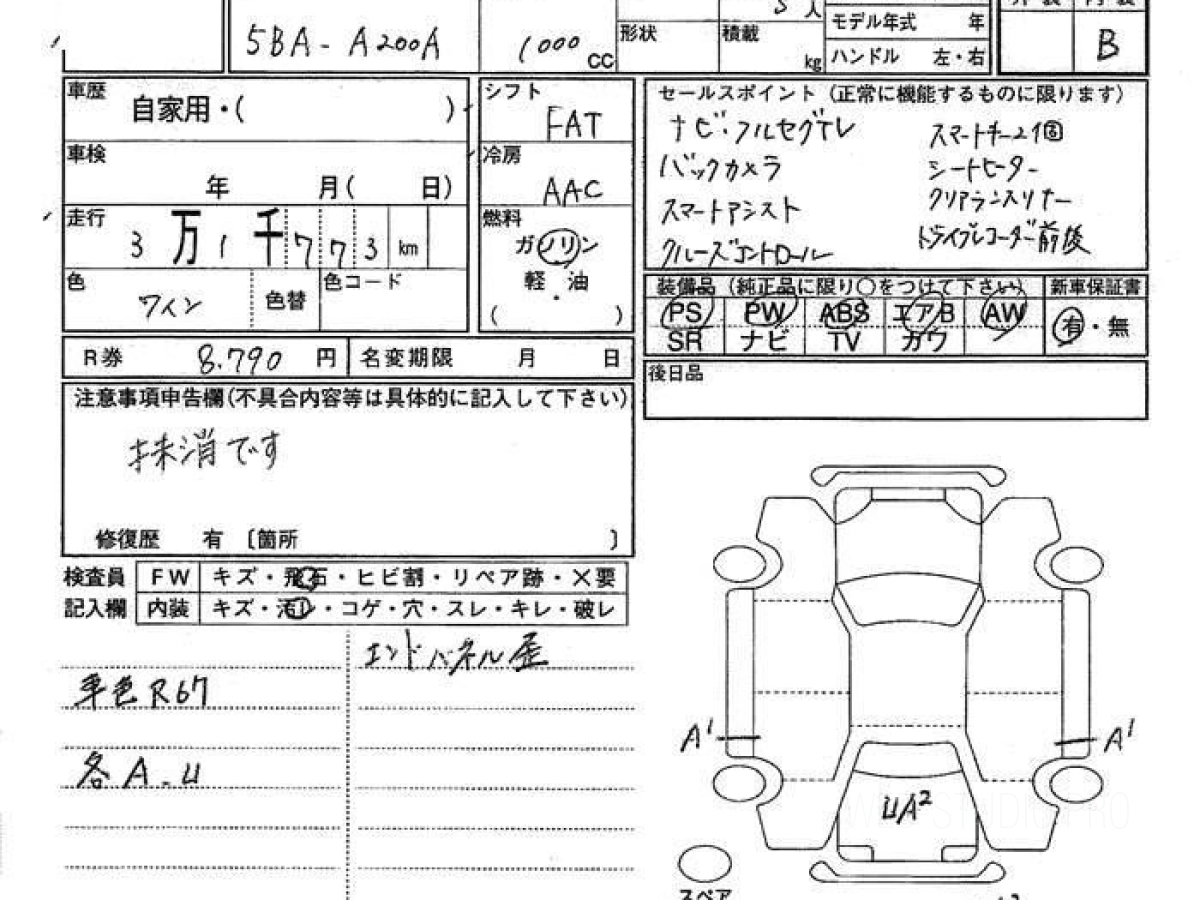 5BA-A200A
1000 cc
形状
積載
5人
kg
モデル年式 年
ハンドル 左・右
B
車歴 自家用・( )
車検 年 月( 日)
走行 3万1千773 km
色 ワイン 色替 色コード
シフト FAT
冷房 AAC
燃料 ガソリン
軽・油
( )
セールスポイント(正常に機能するものに限ります)
ナビ・フルセグTV スマートキー2個
バックカメラ シートヒーター
スマートアシスト クリアランスソナー
クルーズコントロール ドライブレコーダー前後
装備品(純正品に限り○をつけて下さい) 新車保証書
PS PW ABS エアB AW 有・無
SR ナビ TV カワ
R券 8.790円 名変期限 月 日
後日品
注意事項申告欄(不具合内容等は具体的に記入して下さい)
抹消です
修復歴 有 〔箇所 〕
検査員 FW キズ・飛石・ヒビ割・リペア跡・×要
記入欄 内装 キズ・汚レ・コゲ・穴・スレ・キレ・破レ
エンドパネル歪
車色R67
各A.U
A1 A1
UA2
スペア